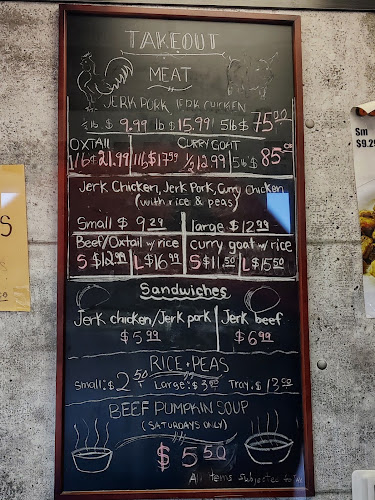 TAKEOUT
MEAT
JERK PORK JERK CHICKEN
½ lb $ 9.99 lb $ 15.99 5lb $ 75.00
OXTAIL CURRY GOAT
1lb $ 21.99 1lb $17.99 ½ 12.99 5lb $ 85.00
Jerk Chicken, Jerk Pork, Curry Chicken
(with rice & peas)
Small $ 9.29 large $ 12.99
Beef/Oxtail w/ rice curry goat w/ rice
S $12.99 L $16.99 S $11.50 L $15.50
Sandwiches
Jerk chicken/Jerk pork Jerk beef
$ 5.99 $ 6.99
RICE + PEAS
Small: $ 2.50 Large: $ 3.95 Tray: $ 13.00
BEEF PUMPKIN SOUP
(SATURDAYS ONLY)
$ 5.50
All items subjected to
Sm
$9.29
S